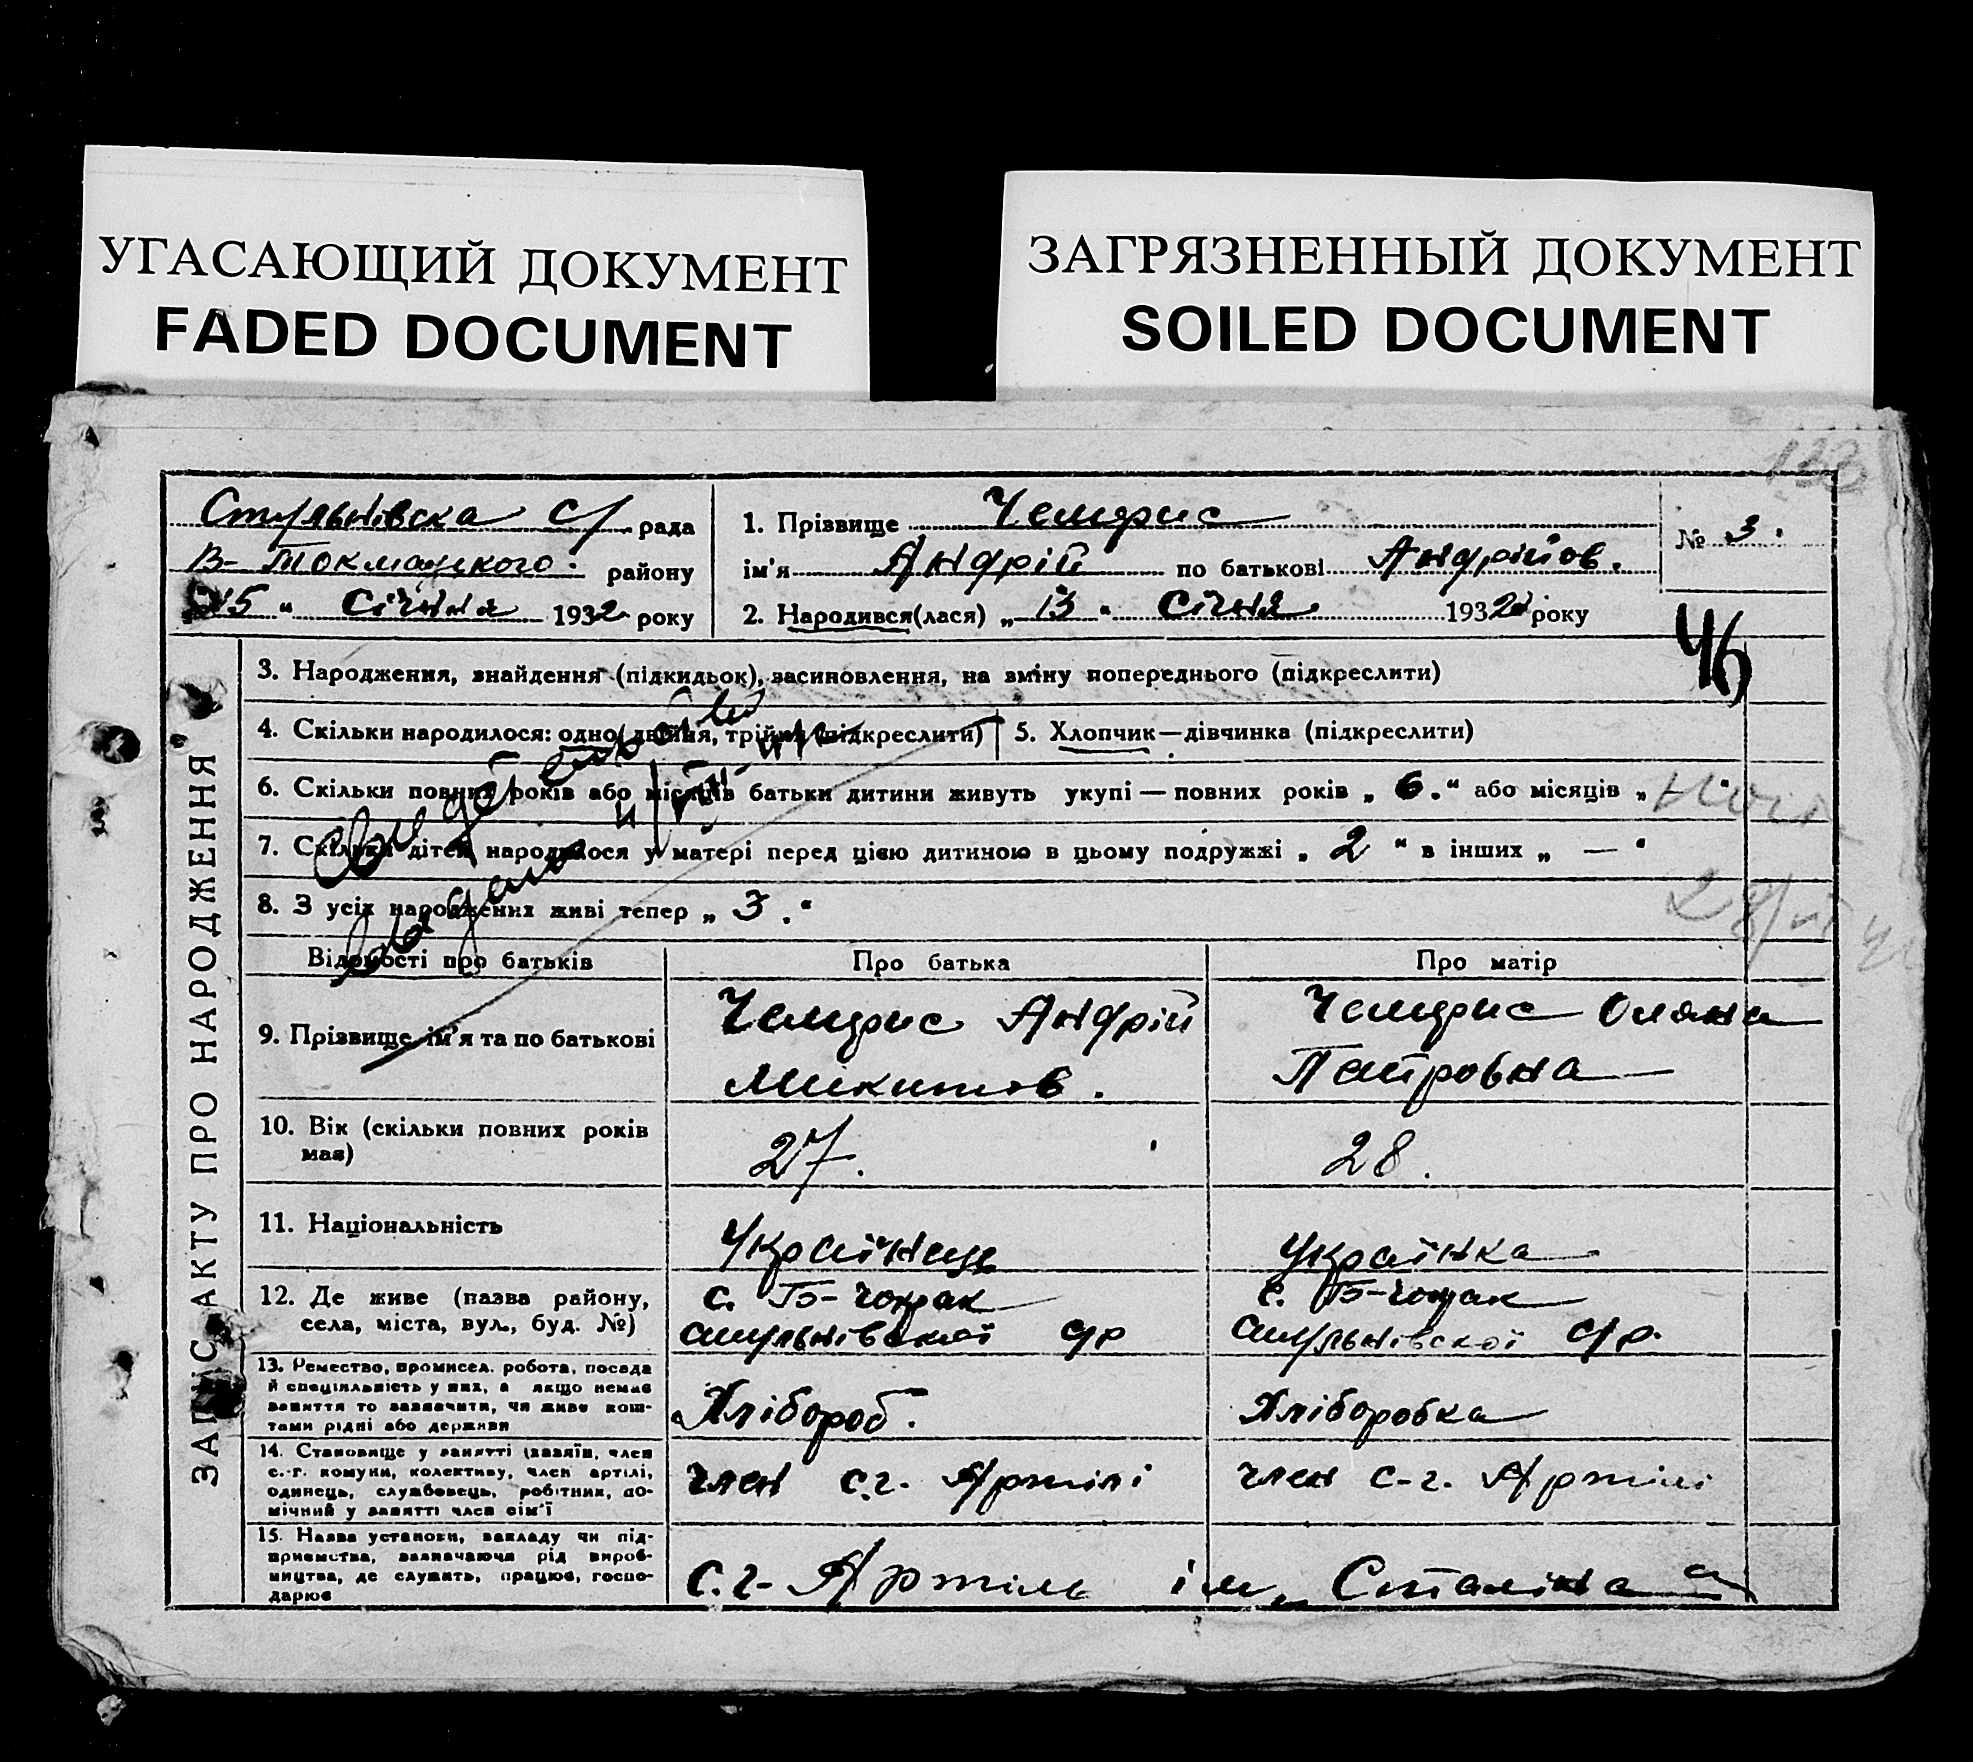 УГАСАЮЩИЙ ДОКУМЕНТ
FADED DOCUMENT
ЗАГРЯЗНЕННЫЙ ДОКУМЕНТ
SOILED DOCUMENT
Стульнівска С/ рада
В-Токмацкого. району
15 " Січня 1932 року
1. Прізвище Чемдрис
ім'я Андрій по батькові Андрійов.
2. Народився(лася) „ 13 " Січня 1932 року
№ 3.
46
ЗАПИС АКТУ ПРО НАРОДЖЕННЯ
3. Народження, знайдення (підкидьок), засиновлення, на зміну попереднього (підкреслити)
4. Скільки народилося: одно, двійня, трійня (підкреслити)
5. Хлопчик—дівчинка (підкреслити)
6. Скільки повних років або місяців батьки дитини живуть укупі — повних років „ 6. " або місяців „
7. Скільки дітей народилося у матері перед цією дитиною в цьому подружжі „ 2 " в інших „ — "
8. З усіх народжених живі тепер „ 3. "
Відомості про батьків
Про батька
Про матір
9. Прізвище, ім'я та по батькові
Чемдрис Андрій
Микитов.
Чемдрис Оляна
Петровна
10. Вік (скільки повних років має)
27.
28.
11. Національність
Українець
Українка
12. Де живе (назва району, села, міста, вул., буд. №)
с. Б-Чокрак
Стульнівскої С/р
с. Б-Чокрак
Стульнівскої С/р.
13. Ремество, промисел. робота, посада
й спеціяльність у них, а якщо немає
заняття то зазначити, чи живе кош-
тами рідні або держави
Хлібороб.
Хліборобка
14. Становище у занятті (хазяїн, член
с.-г. комуни, колективу, член артілі,
одинець, службовець, робітник, до-
мічний у занятті член сім'ї
член с.г. Артілі
член с-г. Артілі
15. Назва установи, закладу чи під-
приємства, зазначаючи рід вироб-
ництва, де служить, працює, госпо-
дарює
С.г-Артіль ім. Сталіна